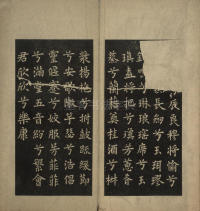 兮辰良穆將愉兮
長劍兮玉珥璆
琳琅瑤席兮玉
瑱盍將把兮瓊芳蕙肴
蒸兮蘭藉奠桂酒兮椒
漿揚枹兮拊鼓疏緩節
兮安歌陳竽瑟兮浩倡
靈偃蹇兮姣服芳菲菲
兮滿堂五音紛兮繁會
君欣欣兮樂康